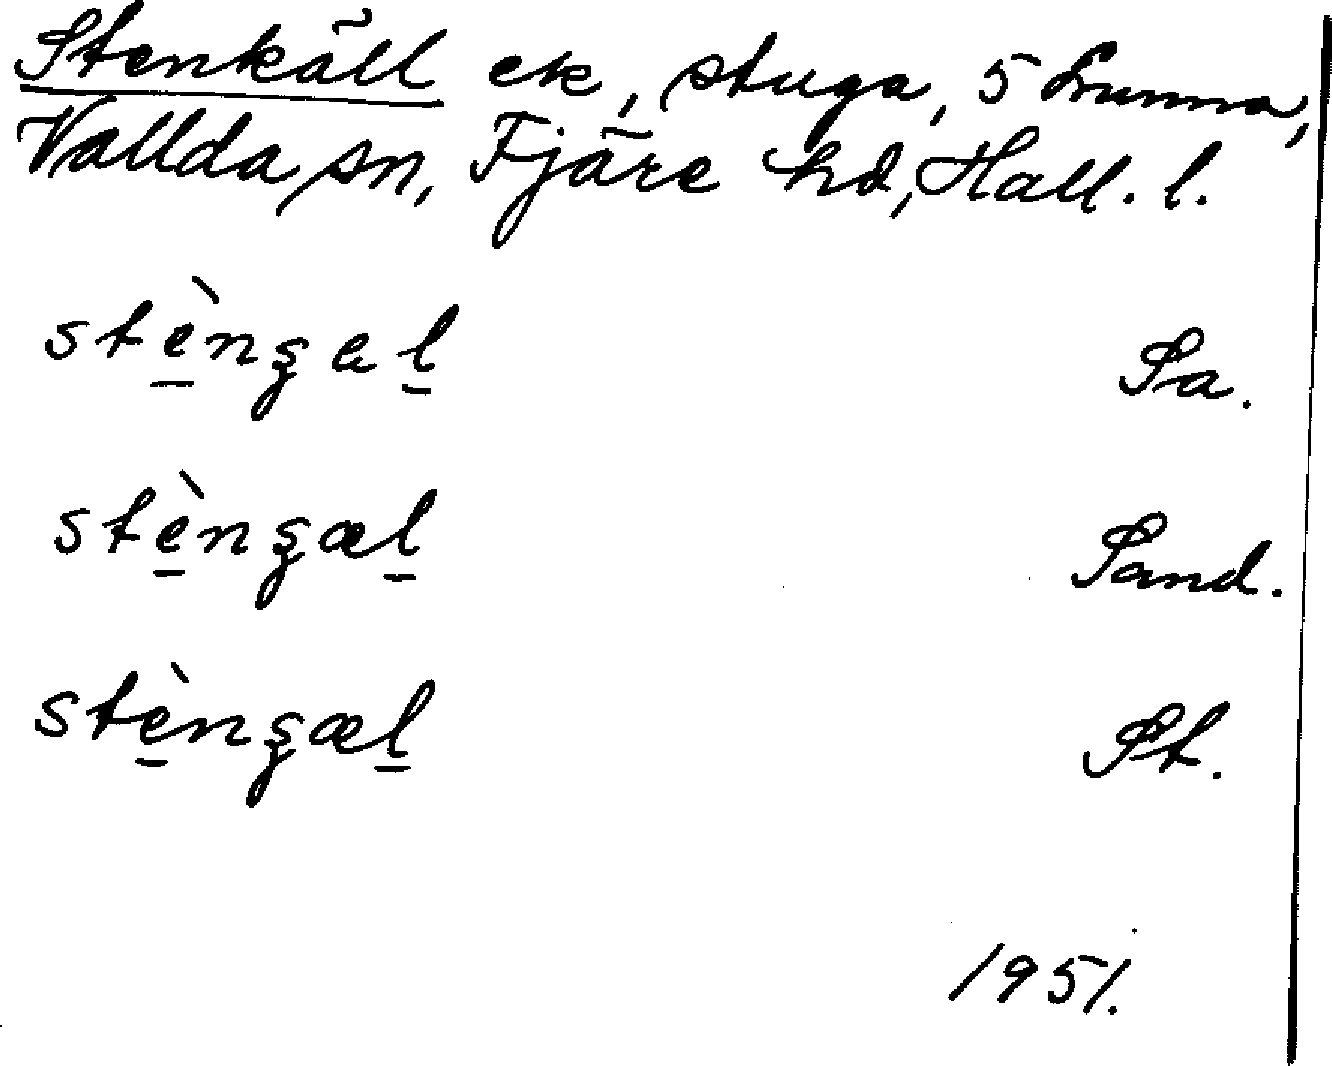 Stenkäll ek, stuga, 5 Lunna,
Vallda sn, Fjäre hd, Hall. l.
stèn̠gal Sa.
stèngæl Sand.
stèngæl St.
1951.